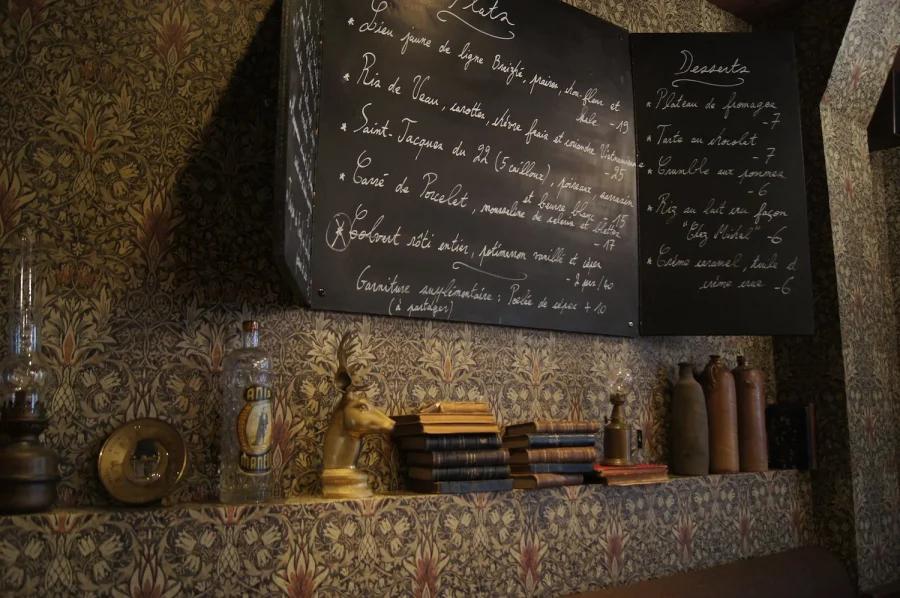 Plats
* Lieu jaune de ligne Breizhé, praires, chou-fleur et
kale - 19
* Ris de Veau, carottes, chèvre frais et coriandre Vietnamienne
- 25
* Saint-Jacques du 22 (5 cailloux), poireaux, sarrasin
et beurre blanc - 15
* Carré de Porcelet, mousseline de céleri et blettes
- 17
* Colvert rôti entier, potimarron vanillé et cèpes
- 2 pers/40
Garniture supplémentaire : Poêlée de cèpes + 10
(à partager)
Desserts
* Plateau de fromages
- 7
* Tarte au chocolat
- 7
* Crumble aux pommes
- 6
* Riz au lait cru façon
"Chez Michel" - 6
* Crème caramel, tuile et
crème crue - 6